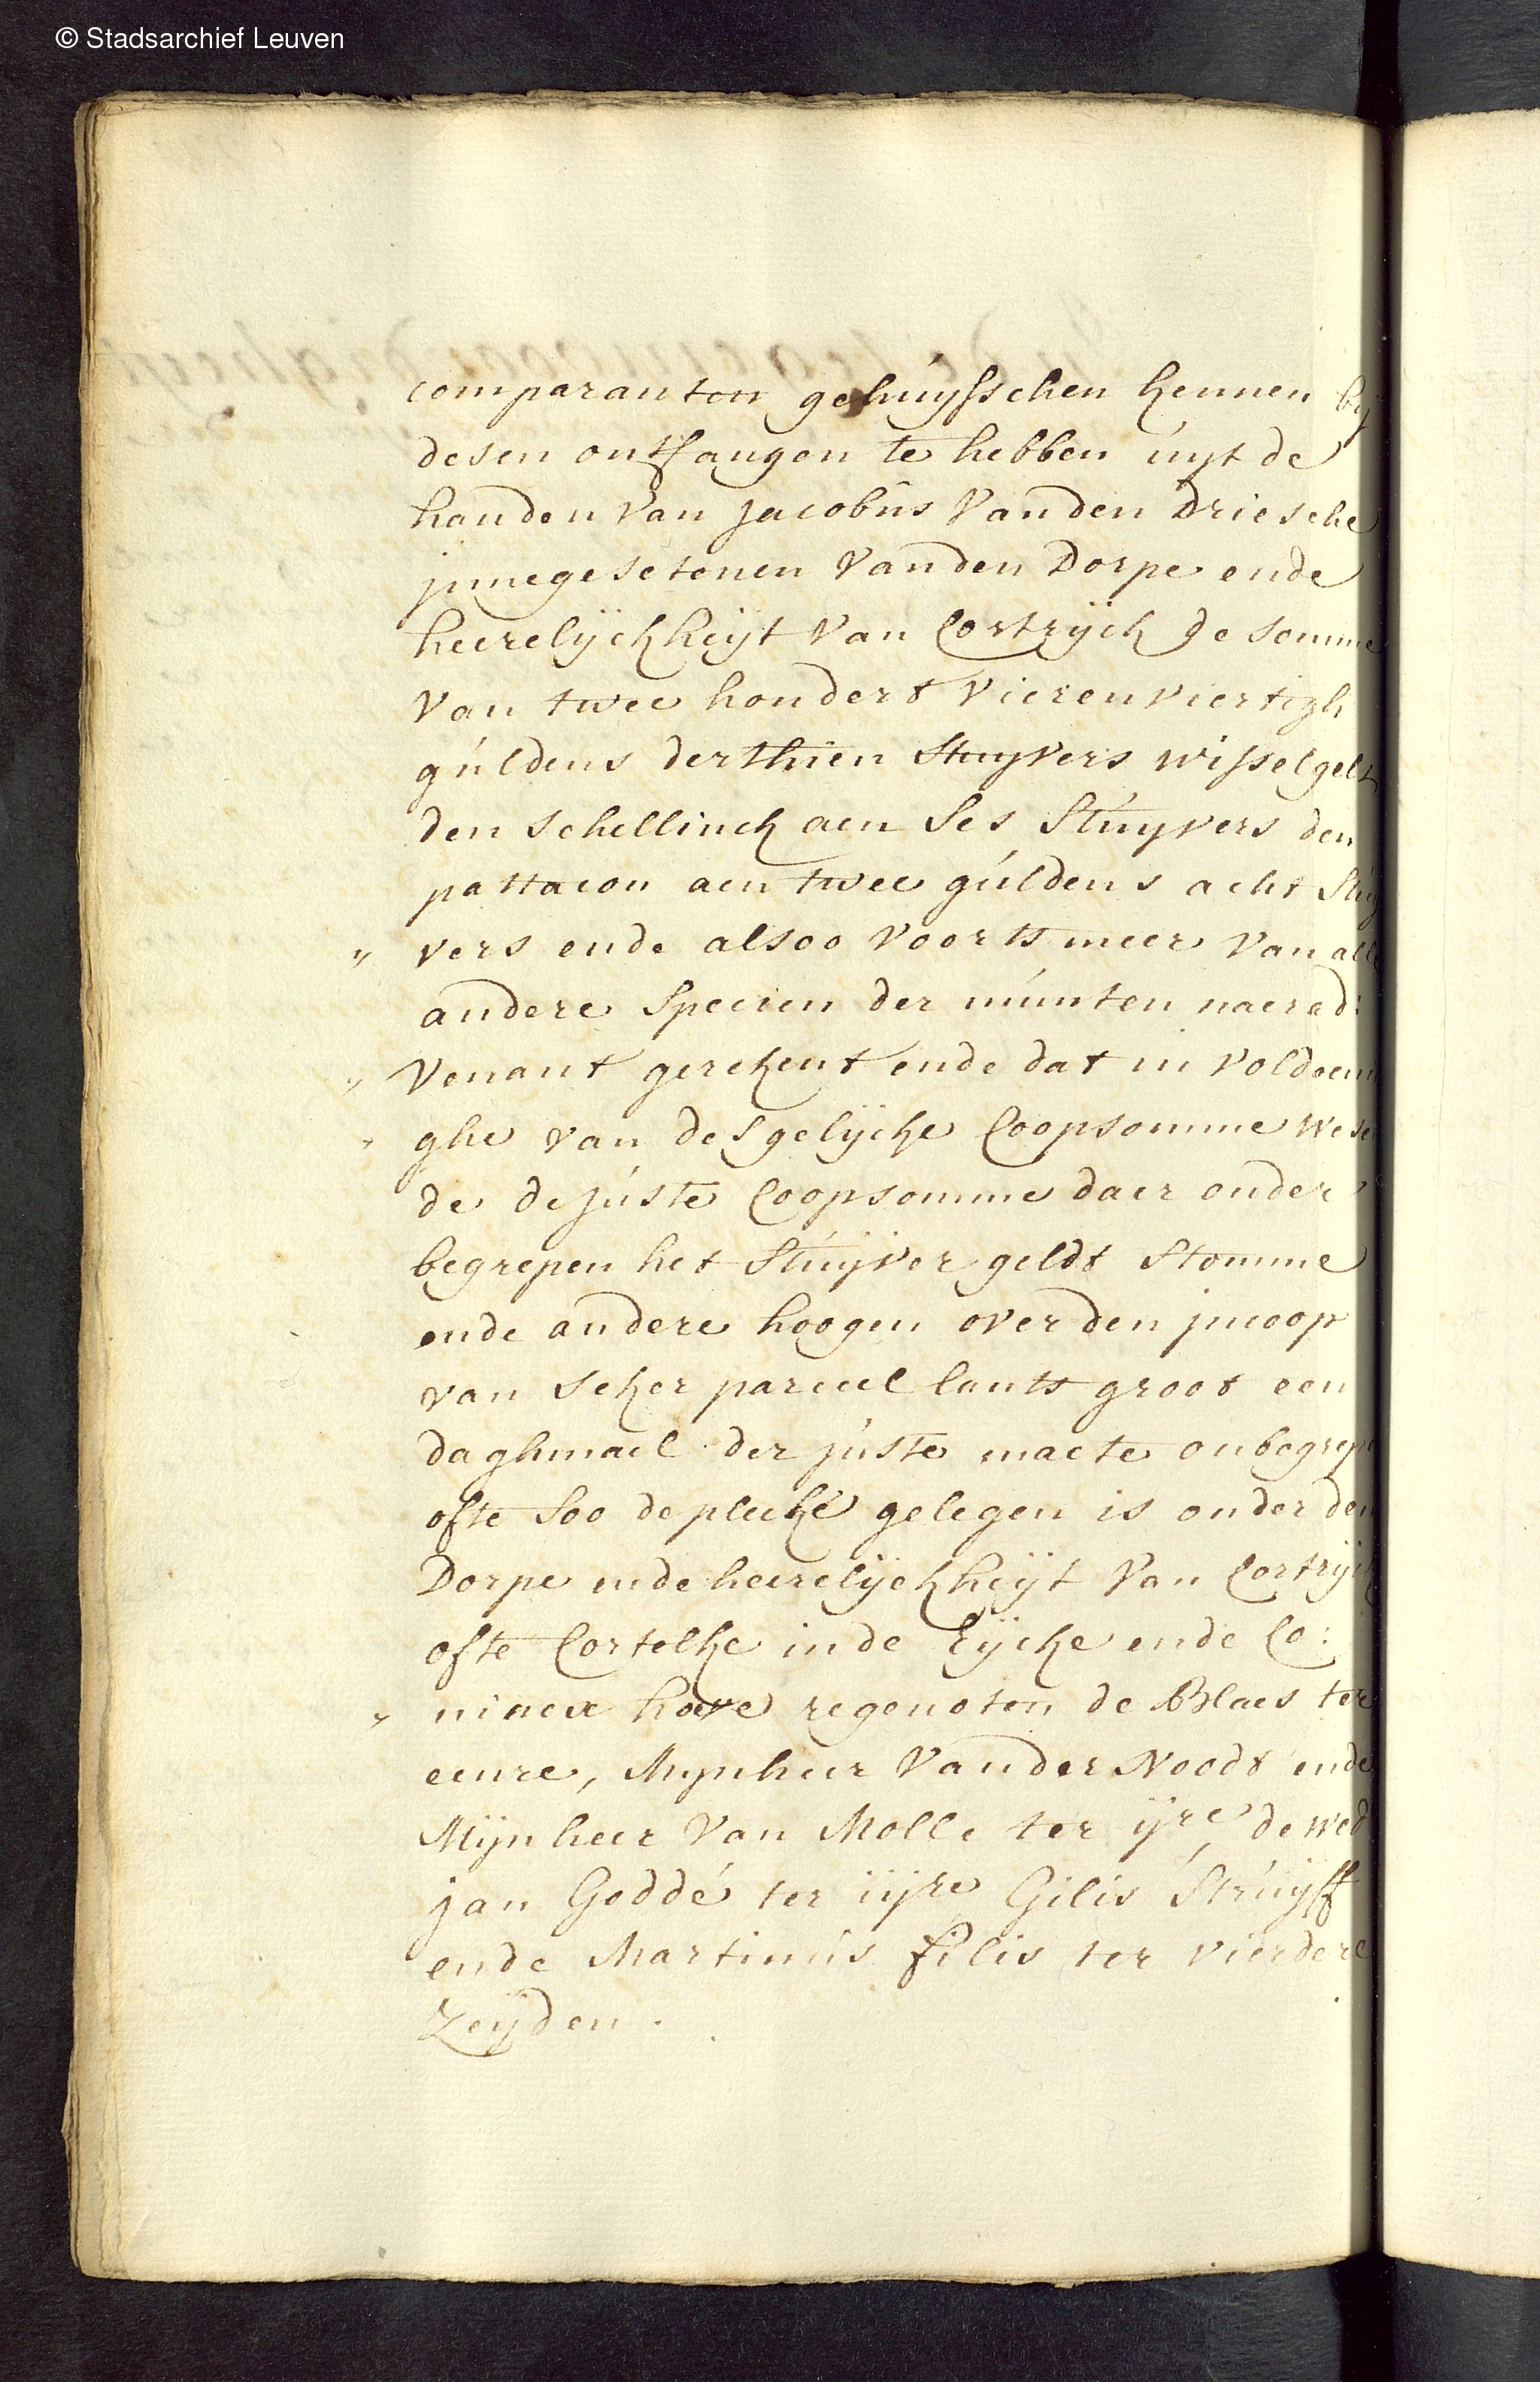 © Stadsarchief Leuven
comparanten gehuÿsschen kennen bÿ
desen ontfangen te hebben uÿt de
handen van jacobus Vanden Driesche
jnnegesetenen Vanden Dorpe ende
heerelÿckheÿt Van Cortrÿck de somme
Van twee hondert Vierenviertigh
guldens derthien Stuÿvers wisselgelt
den schellinck aen ses Stuÿvers den
pattacon aen twee guldens acht Stuÿ
" vers ende alsoo Voorts meer Van alle
andere Specien der munten naer ad:
" Venant gerekent ende dat in Voldoenin
" ghe van desgelÿcke Coopsomme wesen
de de juste Coopsomme daer onder
begrepen het Stuÿver geldt Stomme
ende andere hoogen over den jncoop
van seker parceel lants groot een
daghmael der juste maete onbegrepen
ofte soo de plecke gelegen is onder den
Dorpe ende heerelÿckheÿt Van Cortrÿck
ofte Cortelke in de Eÿcke ende Co:
" nincx hove regenoten de Blaes ter
eenre, Mÿnheer Vander Noodt ende
Mÿnheer Van Molle ter ijre de wed
jan Goddé ter iijre Gilis Struÿff
ende Martinus filis ter vierdere
Zeÿden.